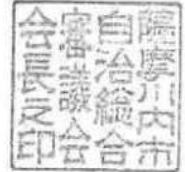 薩摩川内市
自治総合
審議会
会長之印